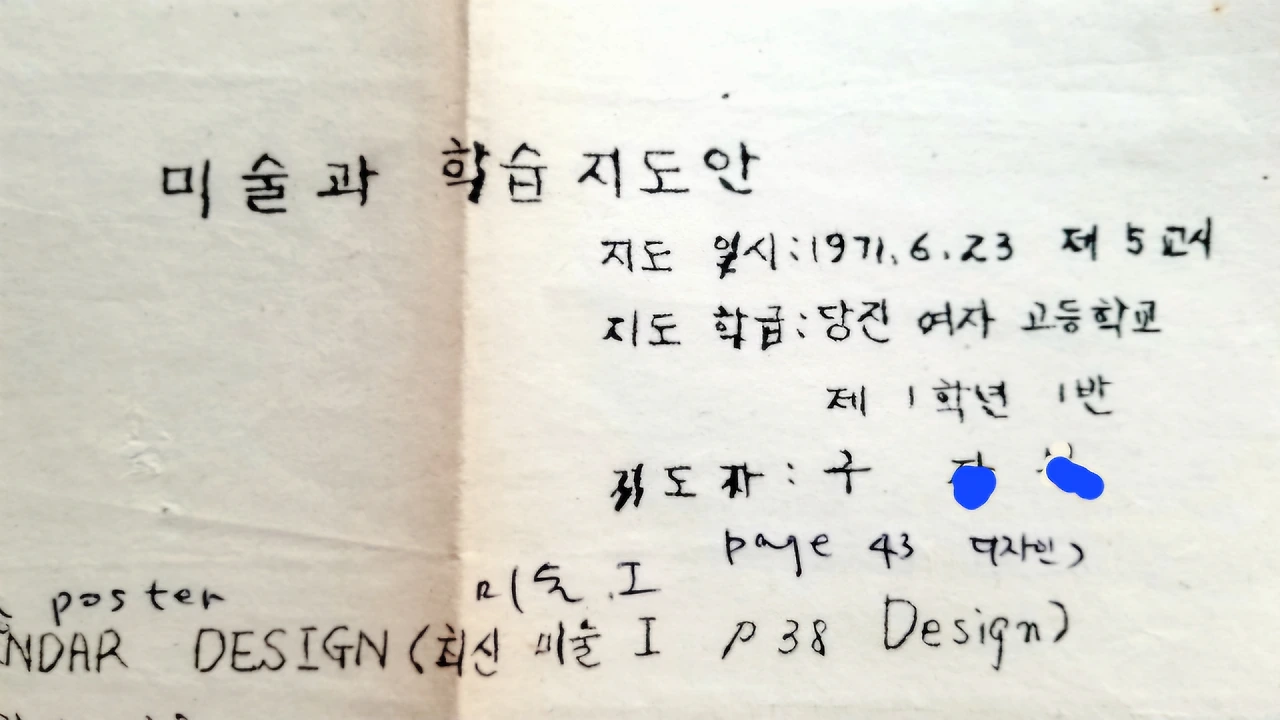 미술과 학습지도안
지도 일시:1971.6.23 제 5교시
지도 학급:당진 여자 고등학교
제 1학년 1반
지도자: 구
page 43 디자인)
poster 미술 I
NDAR DESIGN (최신 미술 I P 38 Design)